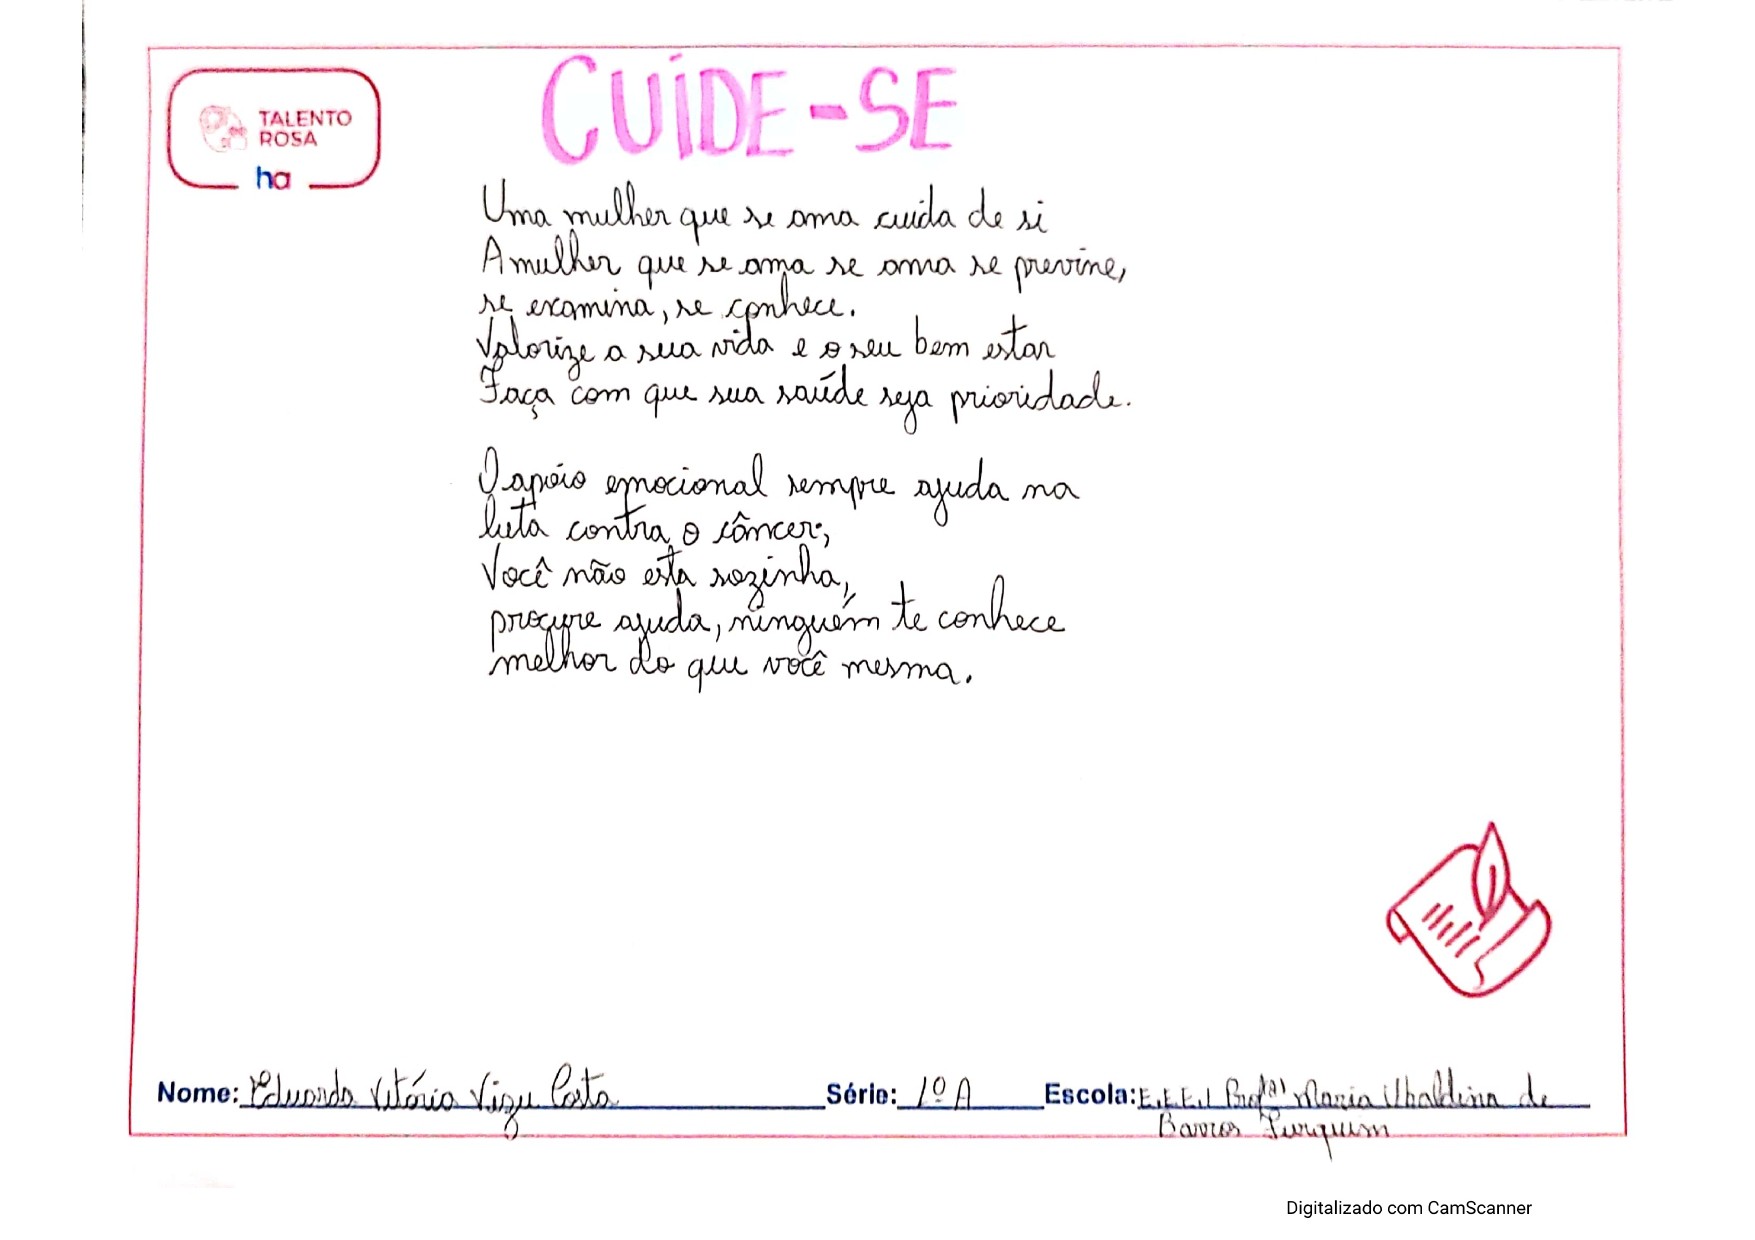 TALENTO
ROSA
ha
CUIDE-SE
Uma mulher que se ama cuida de si
A mulher que se ama se ama se previne,
se examina, se conhece.
Valorize a sua vida e o seu bem estar
Faça com que sua saúde seja prioridade.
O apoio emocional sempre ajuda na
luta contra o câncer;
Você não esta sozinha,
procure ajuda, ninguém te conhece
melhor do que você mesma.
Nome: Eduardo Vitório Costa
Série: 1º A
Escola: Prof(a) Maria Ubaldina de
Barros Furquim
Digitalizado com CamScanner